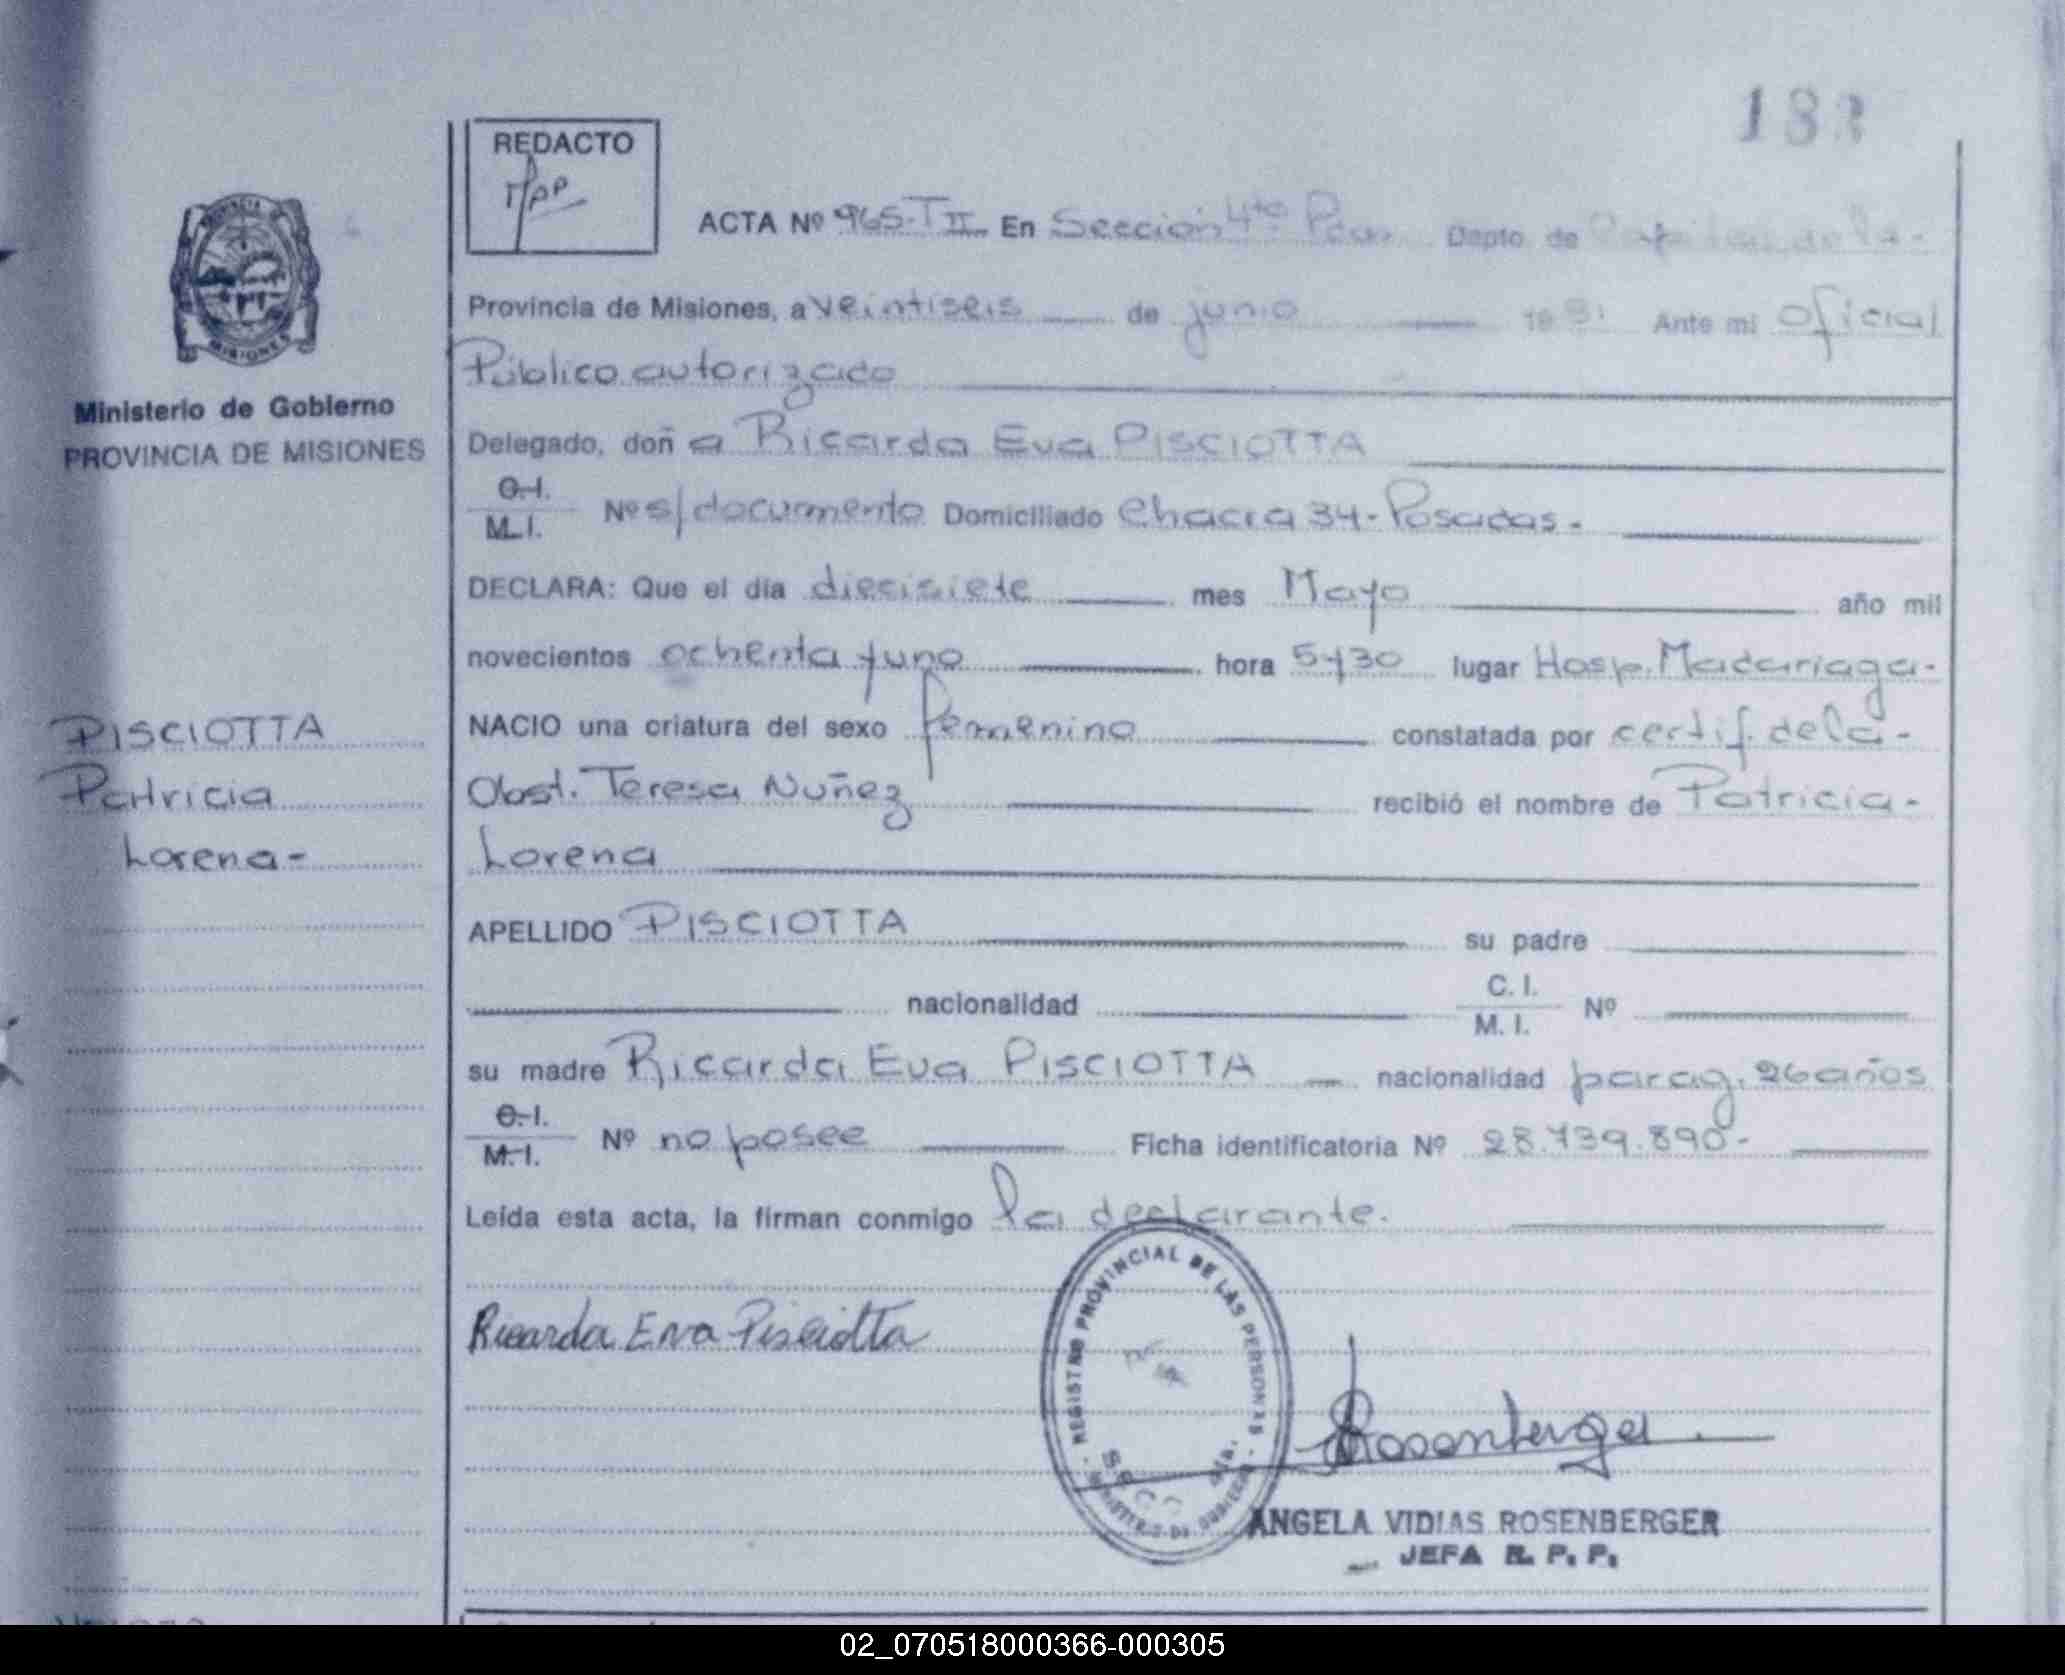 183
REDACTO
ACTA Nº 965-T II En Sección 4ta. Pdas. Depto de Capital de la-
Provincia de Misiones, a veintiseis de junio 1981 Ante mi Oficial
Público autorizado
Delegado, doñ a Ricarda Eva PISCIOTTA
C.I.
M.I. Nº s/documento Domiciliado Chacra 34-Posadas.
DECLARA: Que el día diecisiete mes Mayo año mil
novecientos ochenta y uno hora 5y30 lugar Hosp. Madariaga-
NACIO una criatura del sexo femenino constatada por certif. de la-
Obst. Teresa Nuñez recibió el nombre de Patricia-
Lorena
APELLIDO PISCIOTTA su padre
nacionalidad C.I.
M.I. Nº
su madre Ricarda Eva PISCIOTTA nacionalidad parag. 26 años
C.I.
M.I. Nº no posee Ficha identificatoria Nº 28.739.890-
Leída esta acta, la firman conmigo la declarante.
Ricarda Eva Pisciotta
REGISTRO PROVINCIAL DE LAS PERSONAS
MINISTERIO DE GOBIERNO
Rosenberger
ANGELA VIDIAS ROSENBERGER
JEFA R. P. P.
PROVINCIA DE
MISIONES
Ministerio de Gobierno
PROVINCIA DE MISIONES
PISCIOTTA
Patricia
Lorena-
02_070518000366-000305